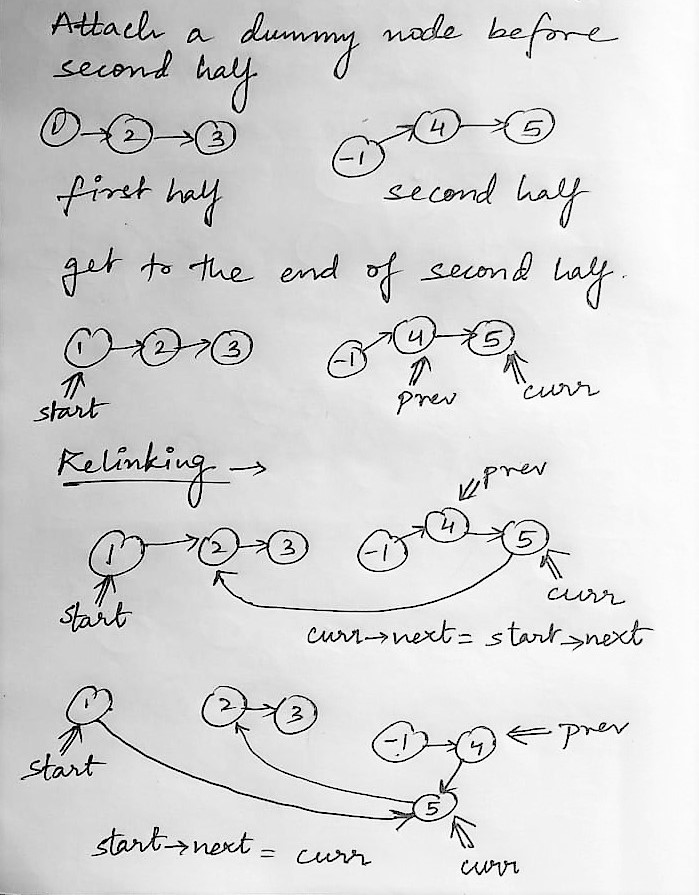 Attach a dummy node before
second half
1 → 2 → 3 -1 → 4 → 5
first half second half
get to the end of second half.
1 → 2 → 3 -1 → 4 → 5
start prev curr
Relinking →
prev
1 → 2 → 3 -1 → 4 → 5
start curr
curr→next = start→next
1 2 → 3 -1 → 4 prev
start
5
start→next = curr
curr